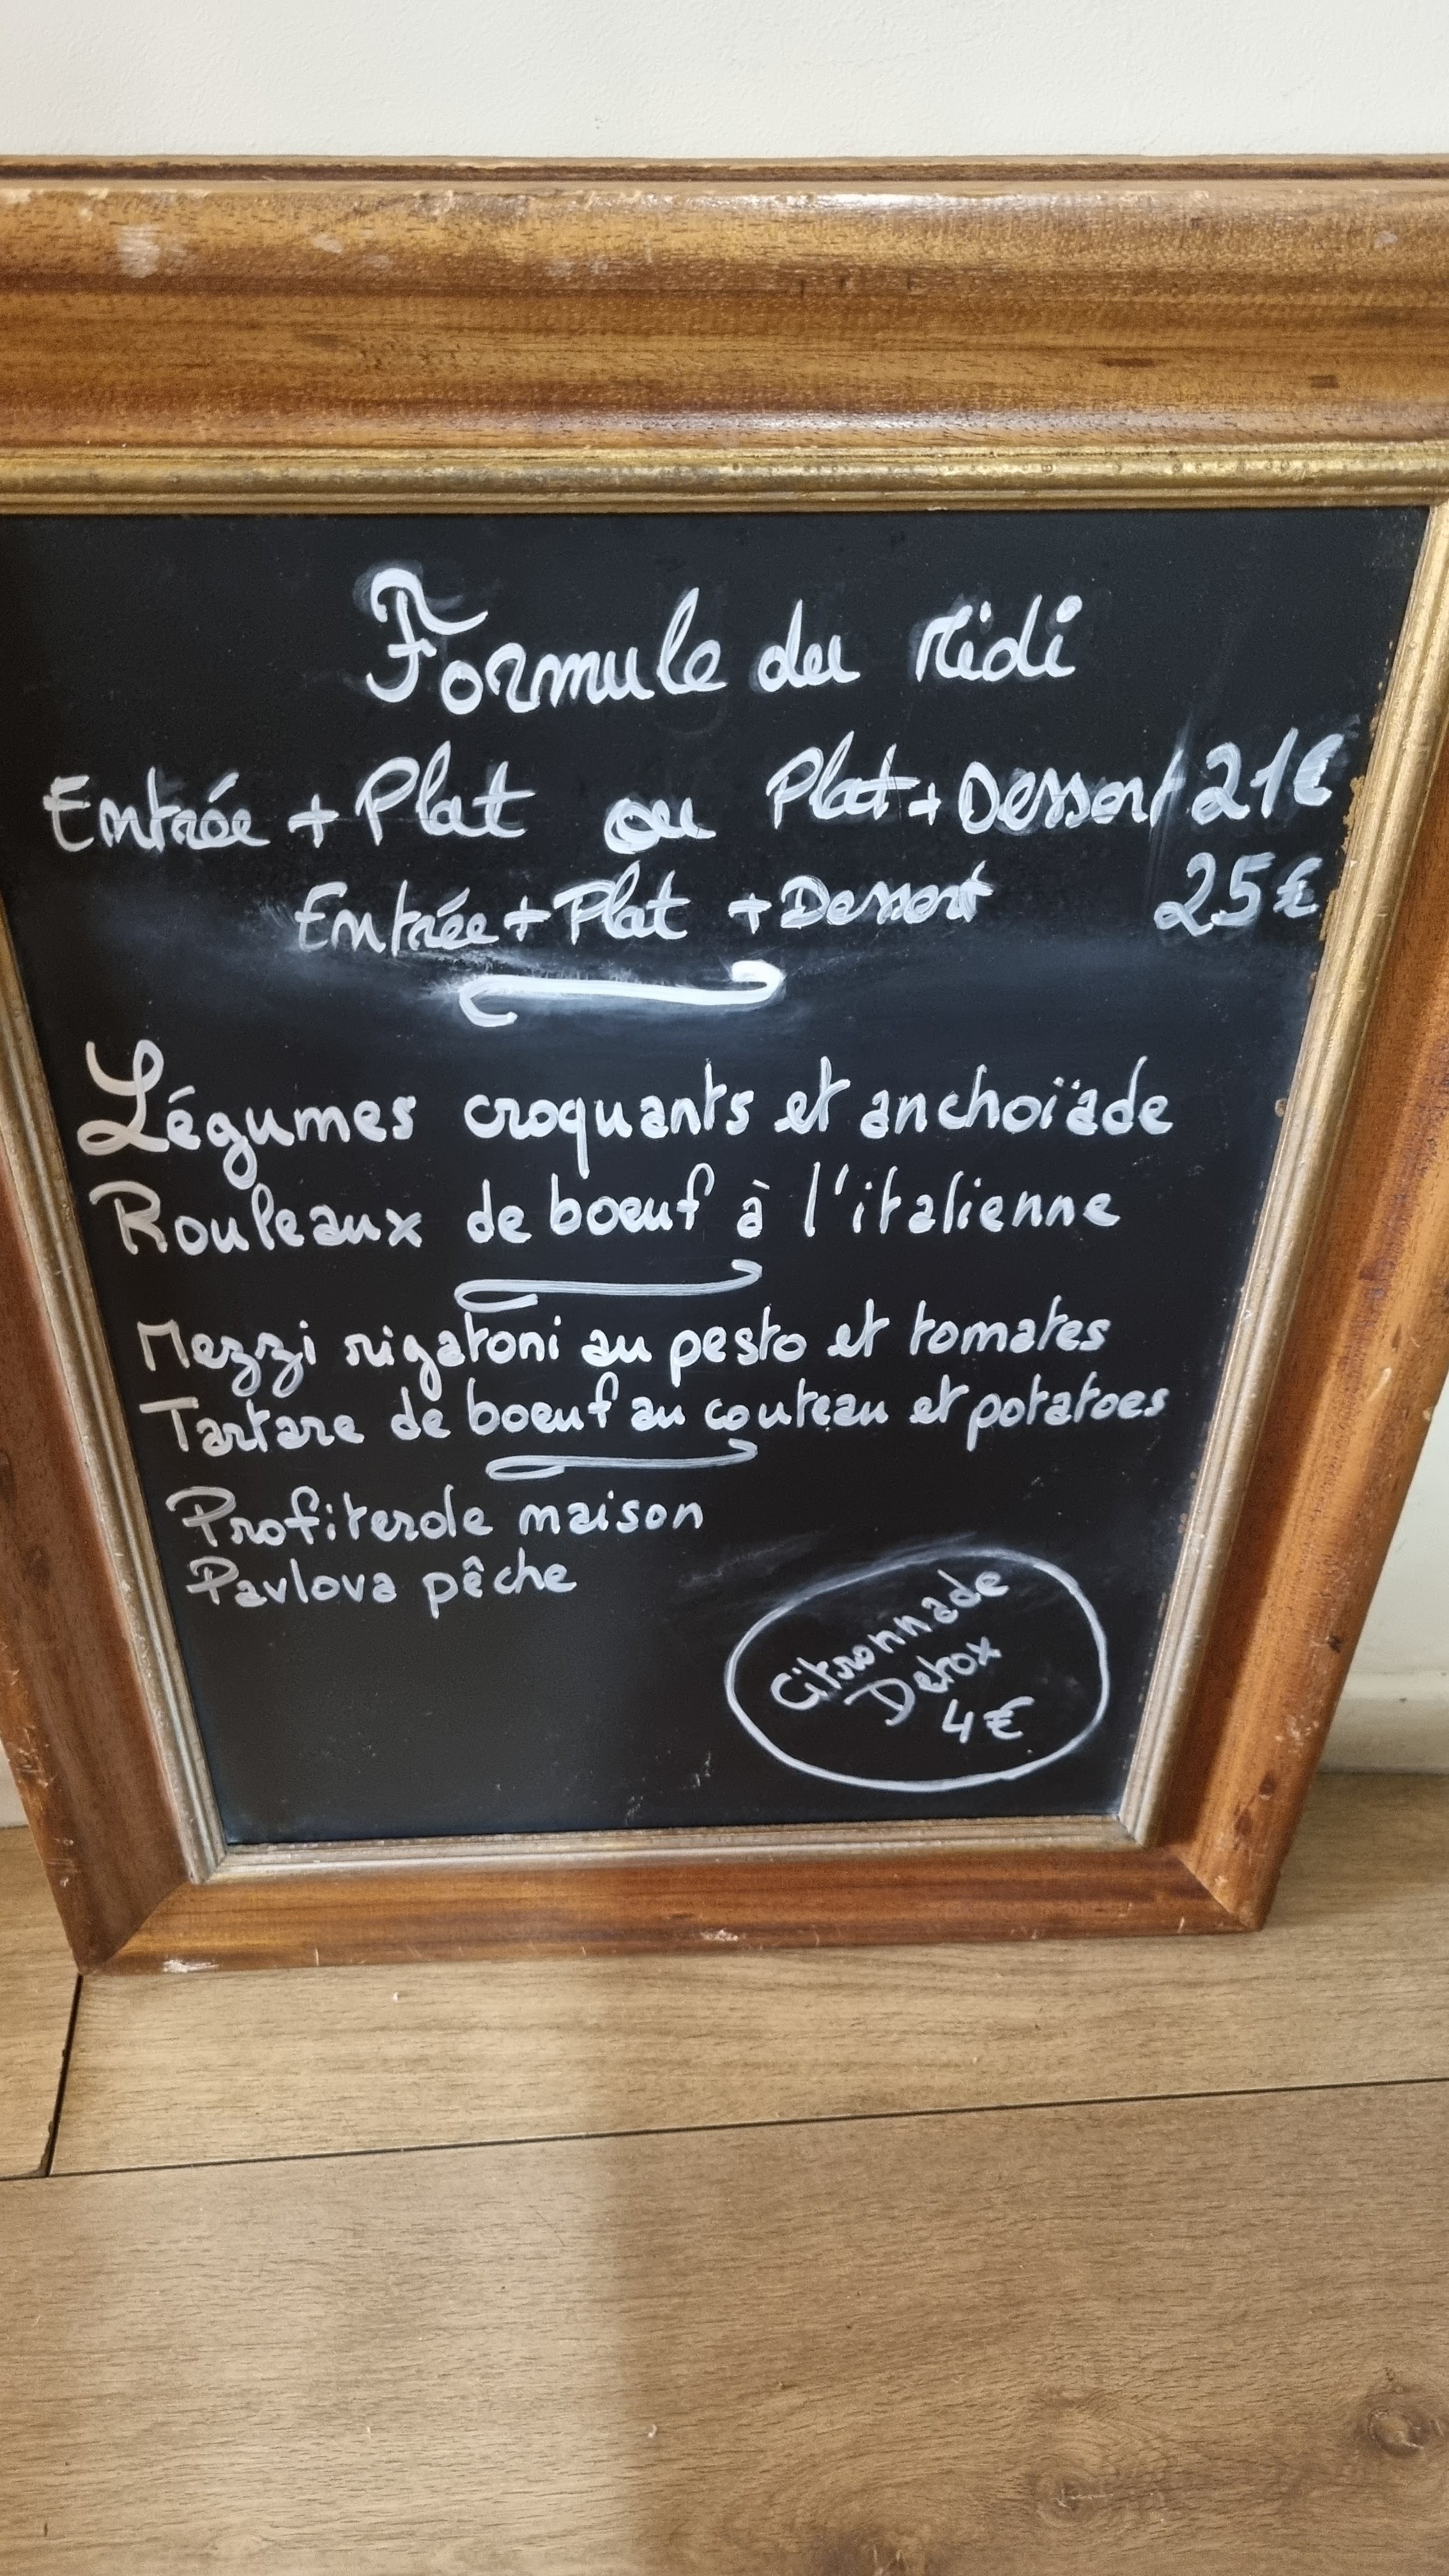 Formule du Midi
Entrée + Plat ou Plat + Dessert 21€
Entrée + Plat + Dessert 25€
Légumes croquants et anchoïade
Rouleaux de boeuf à l'italienne
Mezzi rigatoni au pesto et tomates
Tartare de boeuf au couteau et potatoes
Profiterole maison
Pavlova pêche
Citronnade
Detox
4€